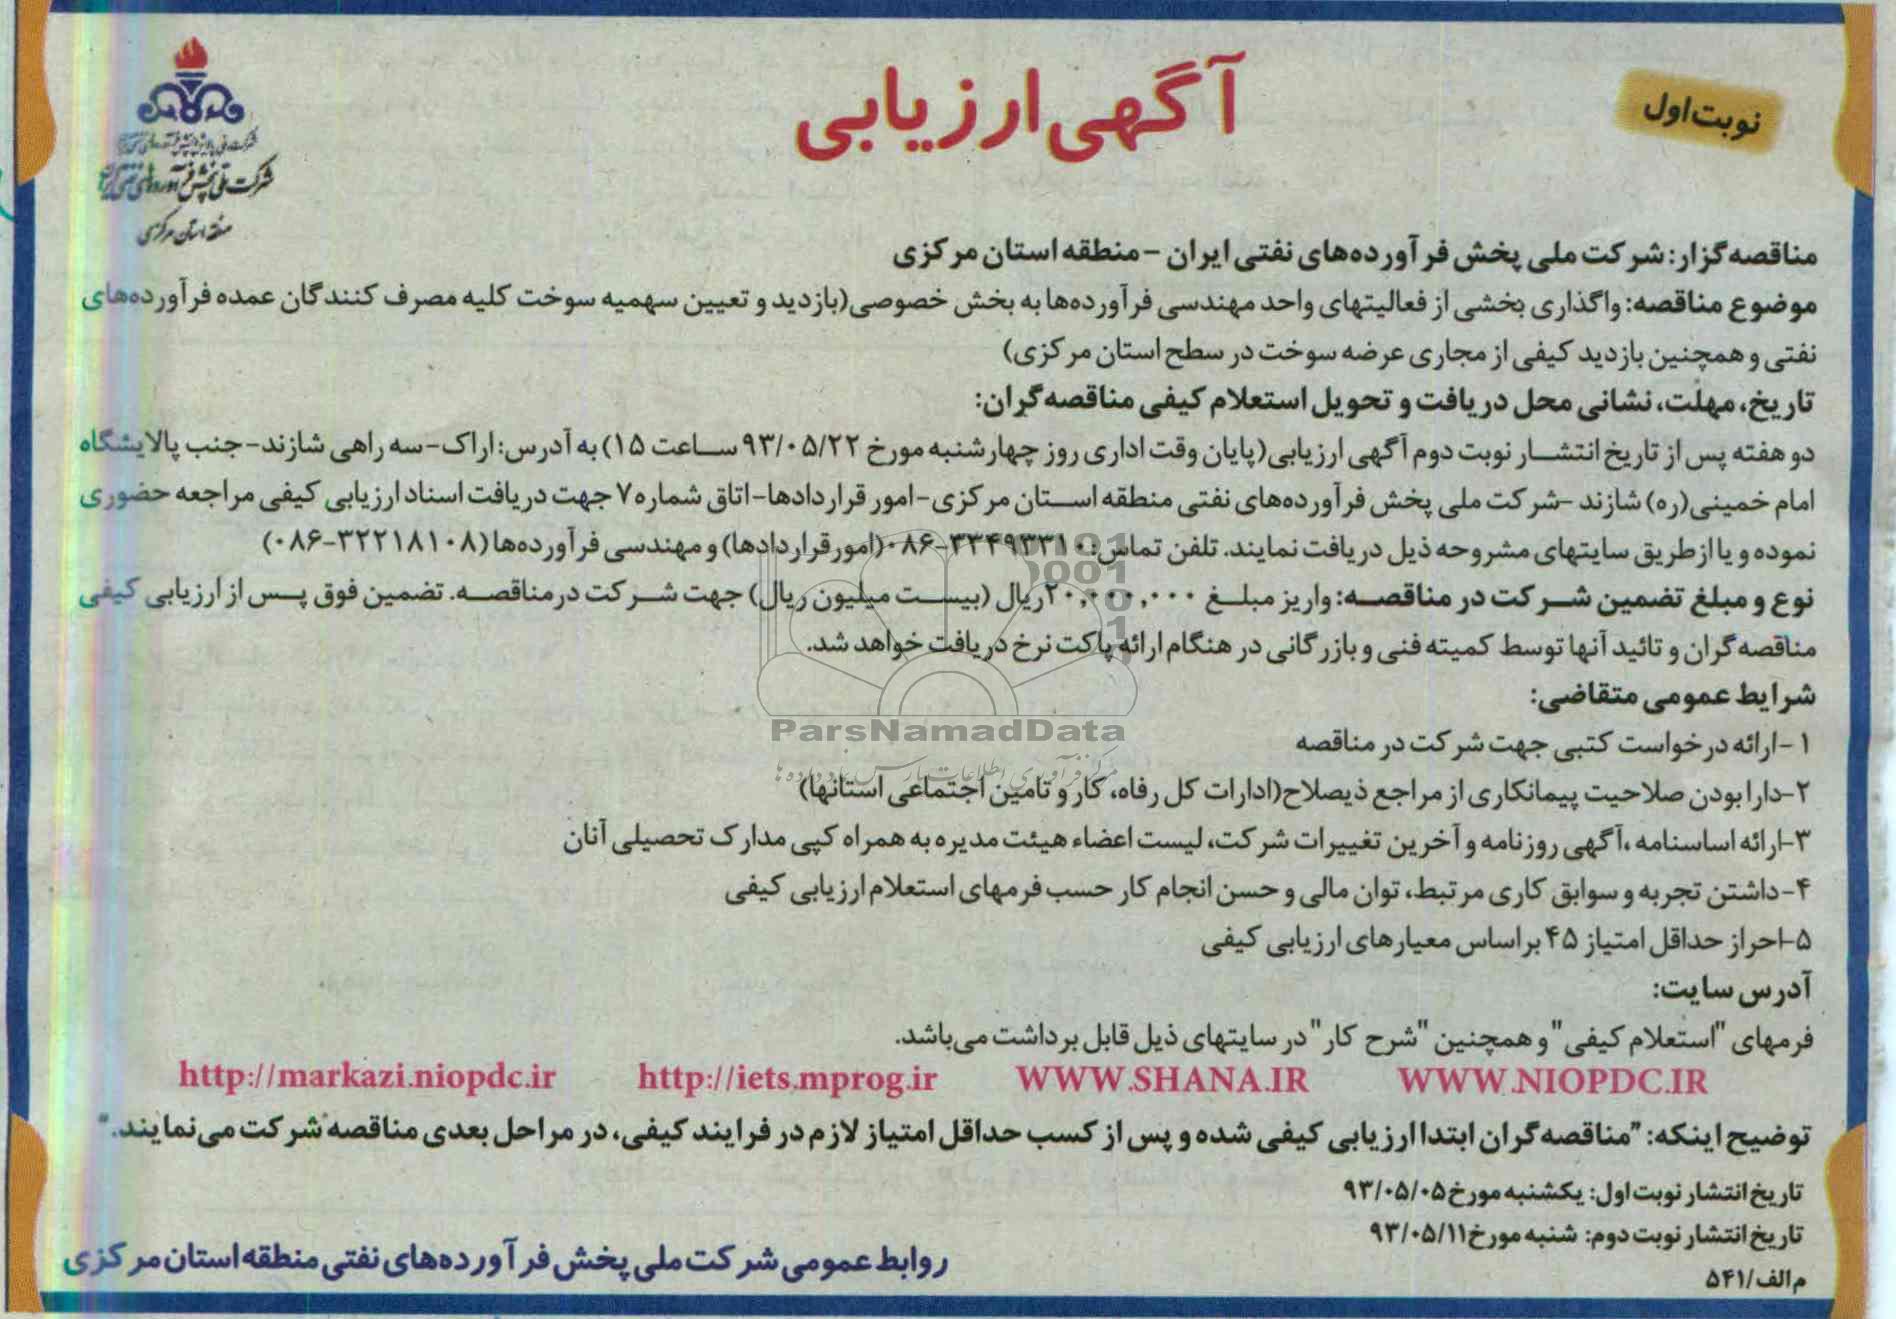 نوبت اول
آگهی ارزیابی
شرکت ملی پالایش و پخش فرآورده‌های نفتی ایران
شرکت ملی پخش فرآورده‌های نفتی ایران
منطقه استان مرکزی
مناقصه‌گزار: شرکت ملی پخش فرآورده‌های نفتی ایران - منطقه استان مرکزی
موضوع مناقصه: واگذاری بخشی از فعالیتهای واحد مهندسی فرآورده‌ها به بخش خصوصی(بازدید و تعیین سهمیه سوخت کلیه مصرف کنندگان عمده فرآورده‌های
نفتی و همچنین بازدید کیفی از مجاری عرضه سوخت در سطح استان مرکزی)
تاریخ، مهلت، نشانی محل دریافت و تحویل استعلام کیفی مناقصه‌گران:
دو هفته پس از تاریخ انتشار نوبت دوم آگهی ارزیابی(پایان وقت اداری روز چهارشنبه مورخ ۹۳/۰۵/۲۲ ساعت ۱۵) به آدرس: اراک-سه راهی شازند-جنب پالایشگاه
امام خمینی(ره) شازند -شرکت ملی پخش فرآورده‌های نفتی منطقه استان مرکزی-امور قراردادها-اتاق شماره ۷ جهت دریافت اسناد ارزیابی کیفی مراجعه حضوری
نموده و یا از طریق سایتهای مشروحه ذیل دریافت نمایند. تلفن تماس: ۳۳۴۹۳۳۱۰-۰۸۶(امور قراردادها) و مهندسی فرآورده‌ها (۳۲۲۱۸۱۰۸-۰۸۶)
نوع و مبلغ تضمین شرکت در مناقصه: واریز مبلغ ۲۰,۰۰۰,۰۰۰ریال (بیست میلیون ریال) جهت شرکت درمناقصه. تضمین فوق پس از ارزیابی کیفی
مناقصه‌گران و تائید آنها توسط کمیته فنی و بازرگانی در هنگام ارائه پاکت نرخ دریافت خواهد شد.
شرایط عمومی متقاضی:
۱-ارائه درخواست کتبی جهت شرکت در مناقصه
۲-دارا بودن صلاحیت پیمانکاری از مراجع ذیصلاح(ادارات کل رفاه، کار و تامین اجتماعی استانها)
۳-ارائه اساسنامه ،آگهی روزنامه و آخرین تغییرات شرکت، لیست اعضاء هیئت مدیره به همراه کپی مدارک تحصیلی آنان
۴-داشتن تجربه و سوابق کاری مرتبط، توان مالی و حسن انجام کار حسب فرمهای استعلام ارزیابی کیفی
۵-احراز حداقل امتیاز ۴۵ براساس معیارهای ارزیابی کیفی
آدرس سایت:
فرمهای "استعلام کیفی" و همچنین "شرح کار" در سایتهای ذیل قابل برداشت می‌باشد.
WWW.NIOPDC.IR WWW.SHANA.IR http://iets.mprog.ir http://markazi.niopdc.ir
توضیح اینکه: "مناقصه‌گران ابتدا ارزیابی کیفی شده و پس از کسب حداقل امتیاز لازم در فرایند کیفی، در مراحل بعدی مناقصه شرکت می‌نمایند."
تاریخ انتشار نوبت اول: یکشنبه مورخ ۹۳/۰۵/۰۵
تاریخ انتشار نوبت دوم: شنبه مورخ ۹۳/۰۵/۱۱
م الف/۵۴۱
روابط عمومی شرکت ملی پخش فرآورده‌های نفتی منطقه استان مرکزی
ParsNamadData
مرکز فرآوری اطلاعات پارس نماد داده ها